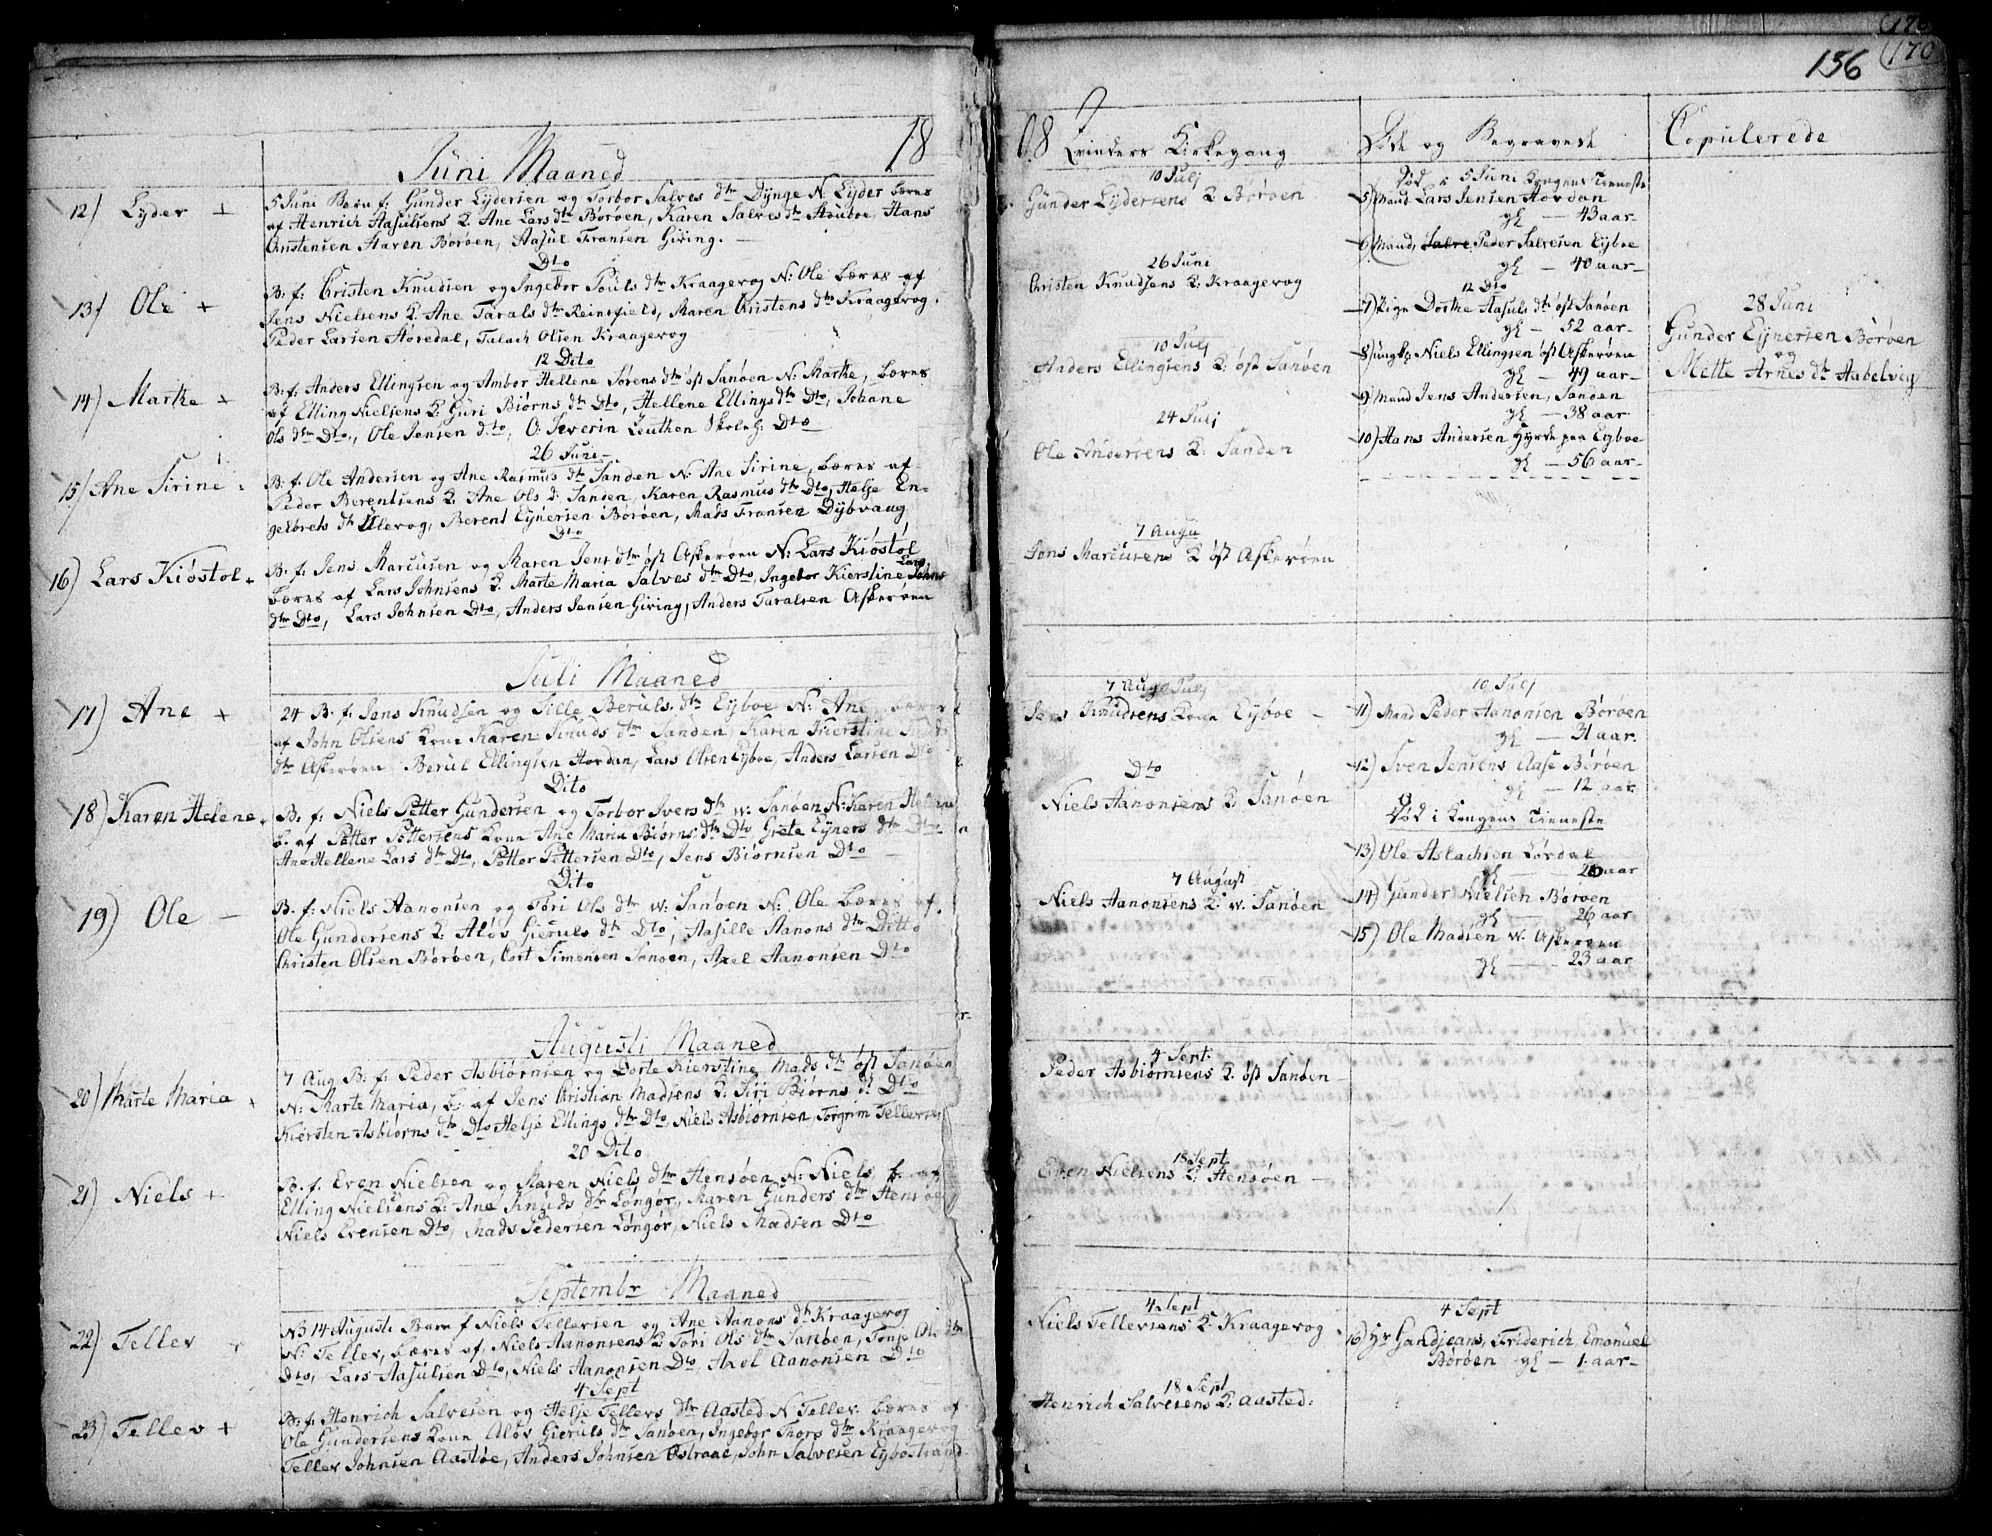 18
Juni Maaned
12) Lyder +
5 Juni B. f: Gunder Lydersen og Torbor Salves dtr Dynge N. Lyder bæres
af Henrich Aasulsens K. Ane Lars dtr Børøen, Karen Salves dtr Hans
Christensen Haven Børøen, Aasul Fransen Giving.
Dto
13) Ole +
B. f: Christen Knudsen og Ingebor Pouls dtr Kraagevog N: Ole bæres af
Jens Nielsens K. Ane Tarals dtr Reinsfield, Maren Christens dtr Kraagevog.
Peder Larsen Høredal, Talach Olsen Kraagevog
12 Dito
14) Marthe +
B. f: Anders Ellingsen og Ambor Hellene Sørens dtr øst Sanøen N: Marthe, bæres
af Elling Nielsens K: Guri Biørns dtr Dto, Hellene Ellings dtr Dto, Johane
Ols dtr Dto, Ole Jensen dto, O. Severin Leuthen Skoleh: Dto
26 Juni
15) Ane Sirine
B. f: Ole Andersen og Ane Rasmus dtr Sanden N: Ane Sirine, bæres af
Peder Berentsens K. Ane Ols d: Sanden, Karen Rasmus dtr Dto, Helje En-
gelbrets dtr Ulevog, Berent Eynersen Børøen, Mads Fransen Dybvaag
Dto
16) Lars Kiøstol +
B. f: Jens Marcusen og Maren Jens dtr øst Askerøen N: Lars Kiøstol
bæres af Lars Johnsens K. Marte Maria Salves dtr Dto, Ingebor Kierstine Lars
dtr Dto, Lars Johnsen Dto, Anders Jensen Giving, Anders Taralsen Askerøen
Juli Maaned
17) Ane +
24 B. f: Jens Knudsen og Sille Beruls dtr Eyboe N: Ane bæres
af John Olsens Kone Karen Knuds dtr Sanden, Karen Kierstine
dtr Askerøen Berul Ellingsen Hordan, Lars Olsen Eyboe, Anders Larsen Dto
Dito
18) Karen Helene
B. f: Niels Petter Gundersen og Torbor Ivers dtr w. Sanøen N: Karen Hellene
b. af Petter Pettersens Kone Ane Maria Biørns dtr Dto, Grete Eyners dtr Dto
Ane Hellene Lars dtr Dto, Petter Pettersen Dto, Jens Biørnsen Dto
Dito
19) Ole -
B. f: Niels Aanonsen og Tori Ols dtr w: Sanøen N: Ole bæres af
Ole Gundersens K: Aløv Gieruls dtr Dto, Aasille Aanons dtr Ditto
Christen Olsen Børøen, Cort Simensen Sanøen, Axel Aanonsen Dto
Augusti Maaned
20) Marte Maria +
7 Aug B. f: Peder Asbiørnsen og Dorte Kierstine Mads dtr øst Sanøen
N: Marte Maria, b: af Jens Christian Madsens K: Siri Biørns d: Dto
Kiersten Asbiørns dtr Dto Helje Ellings dtr Dto, Niels Asbiørnsen, Torgrim Tellevsen
20 Dito
21) Niels +
B. f: Even Nielsen og Maren Niels dtr Hensøen N: Niels b. af
Elling Nielsens K: Ane Knuds dtr Løngør, Maren Gunders dtr Hensøe
Niels Evensen Dto, Mads Pedersen Løngør, Niels Madsen Dto
Septembr Maaned
22) Tellev
N3 14 Augusti Barn f Niels Tellevsen og Ane Aanons dtr Kraagevog
N: Tellev, bæres af Niels Aanonsens K Tori Ols dtr Sanøen, Tonje Ols dtr
Dto, Lars Aasulsen Dto, Niels Aanonsen Dto, Axel Aanonsen Dto
4 Sept
23) Tellev +
B. f: Henrich Salvesen og Helje Tellevs dtr Aasted N Tellev bæres af
Ole Gundersens Kone Aløv Gieruls dtr Sanøen, Ingebor Thors dtr Kraagevog
Tellev Johnsen Aastøe, Anders Johnsen Østraae, John Salvesen Eybostrand
170
156
08
Qvinders Kirkegang
10 Julj
Gunder Lydersens K Børøen
26 Juni
Christen Knudsens K: Kraagevog
10 Julj
Anders Ellingsens K: øst Sanøen
24 Julj
Ole Andersens K: Sanden
7 Augu
Jens Marcusens K øst Askerøen
7 Aug Julj
Jens Knudsens Kone Eyboe -
Dto
Niels Aanonsens K: Sanøen
7 August
Niels Aanonsens K. w. Sanøen
4 Sept.
Peder Asbiørnsens K. øst Sanøen -
18 Sept
Even Nielsens K: Hensøen -
4 Sept
Niels Tellevsens K. Kraagevog
18 Sept
Henrich Salvesens K: Aasted.
Døde og Begravede
Død i 5 Juni Kongens Tieneste
5) Mand Lars Jensen Hordan
gl - 43 aar
6) Mand, Salve Peder Salvesen Eyboe
gl - 40 aar
12 Dto
7) Pige Dorthe Aasuls dtr øst Sanøen
gl - 52 aar
8) ungk: Niels Ellingsen øst Askerøen
gl - 49 aar
9) Mand Jens Andersen, Sanøen
gl - 38 aar
10) Hans Andersen Hyrde paa Eyboe
gl - 56 aar
10 Julj
11) Mand Peder Aanonsen Børøen
gl - 31 aar.
12) Sven Jensens Aase Børøen
gl - 12 aar
Død i Kongens Tieneste
13) Ole Aslachsen Lørdal
gl - 20 aar
14) Gunder Nielsen Børøen
gl - 26 aar
15) Ole Madsen w. Askerøen
gl - 23 aar
4 Sept
16) Hr Gandjeans, Friderich Emanuel
Børøen gl - 1 aar
Copulerede
28 Juni
Gunder Eynersen Børøen
og
Mette Arnes dtr Aabelvig